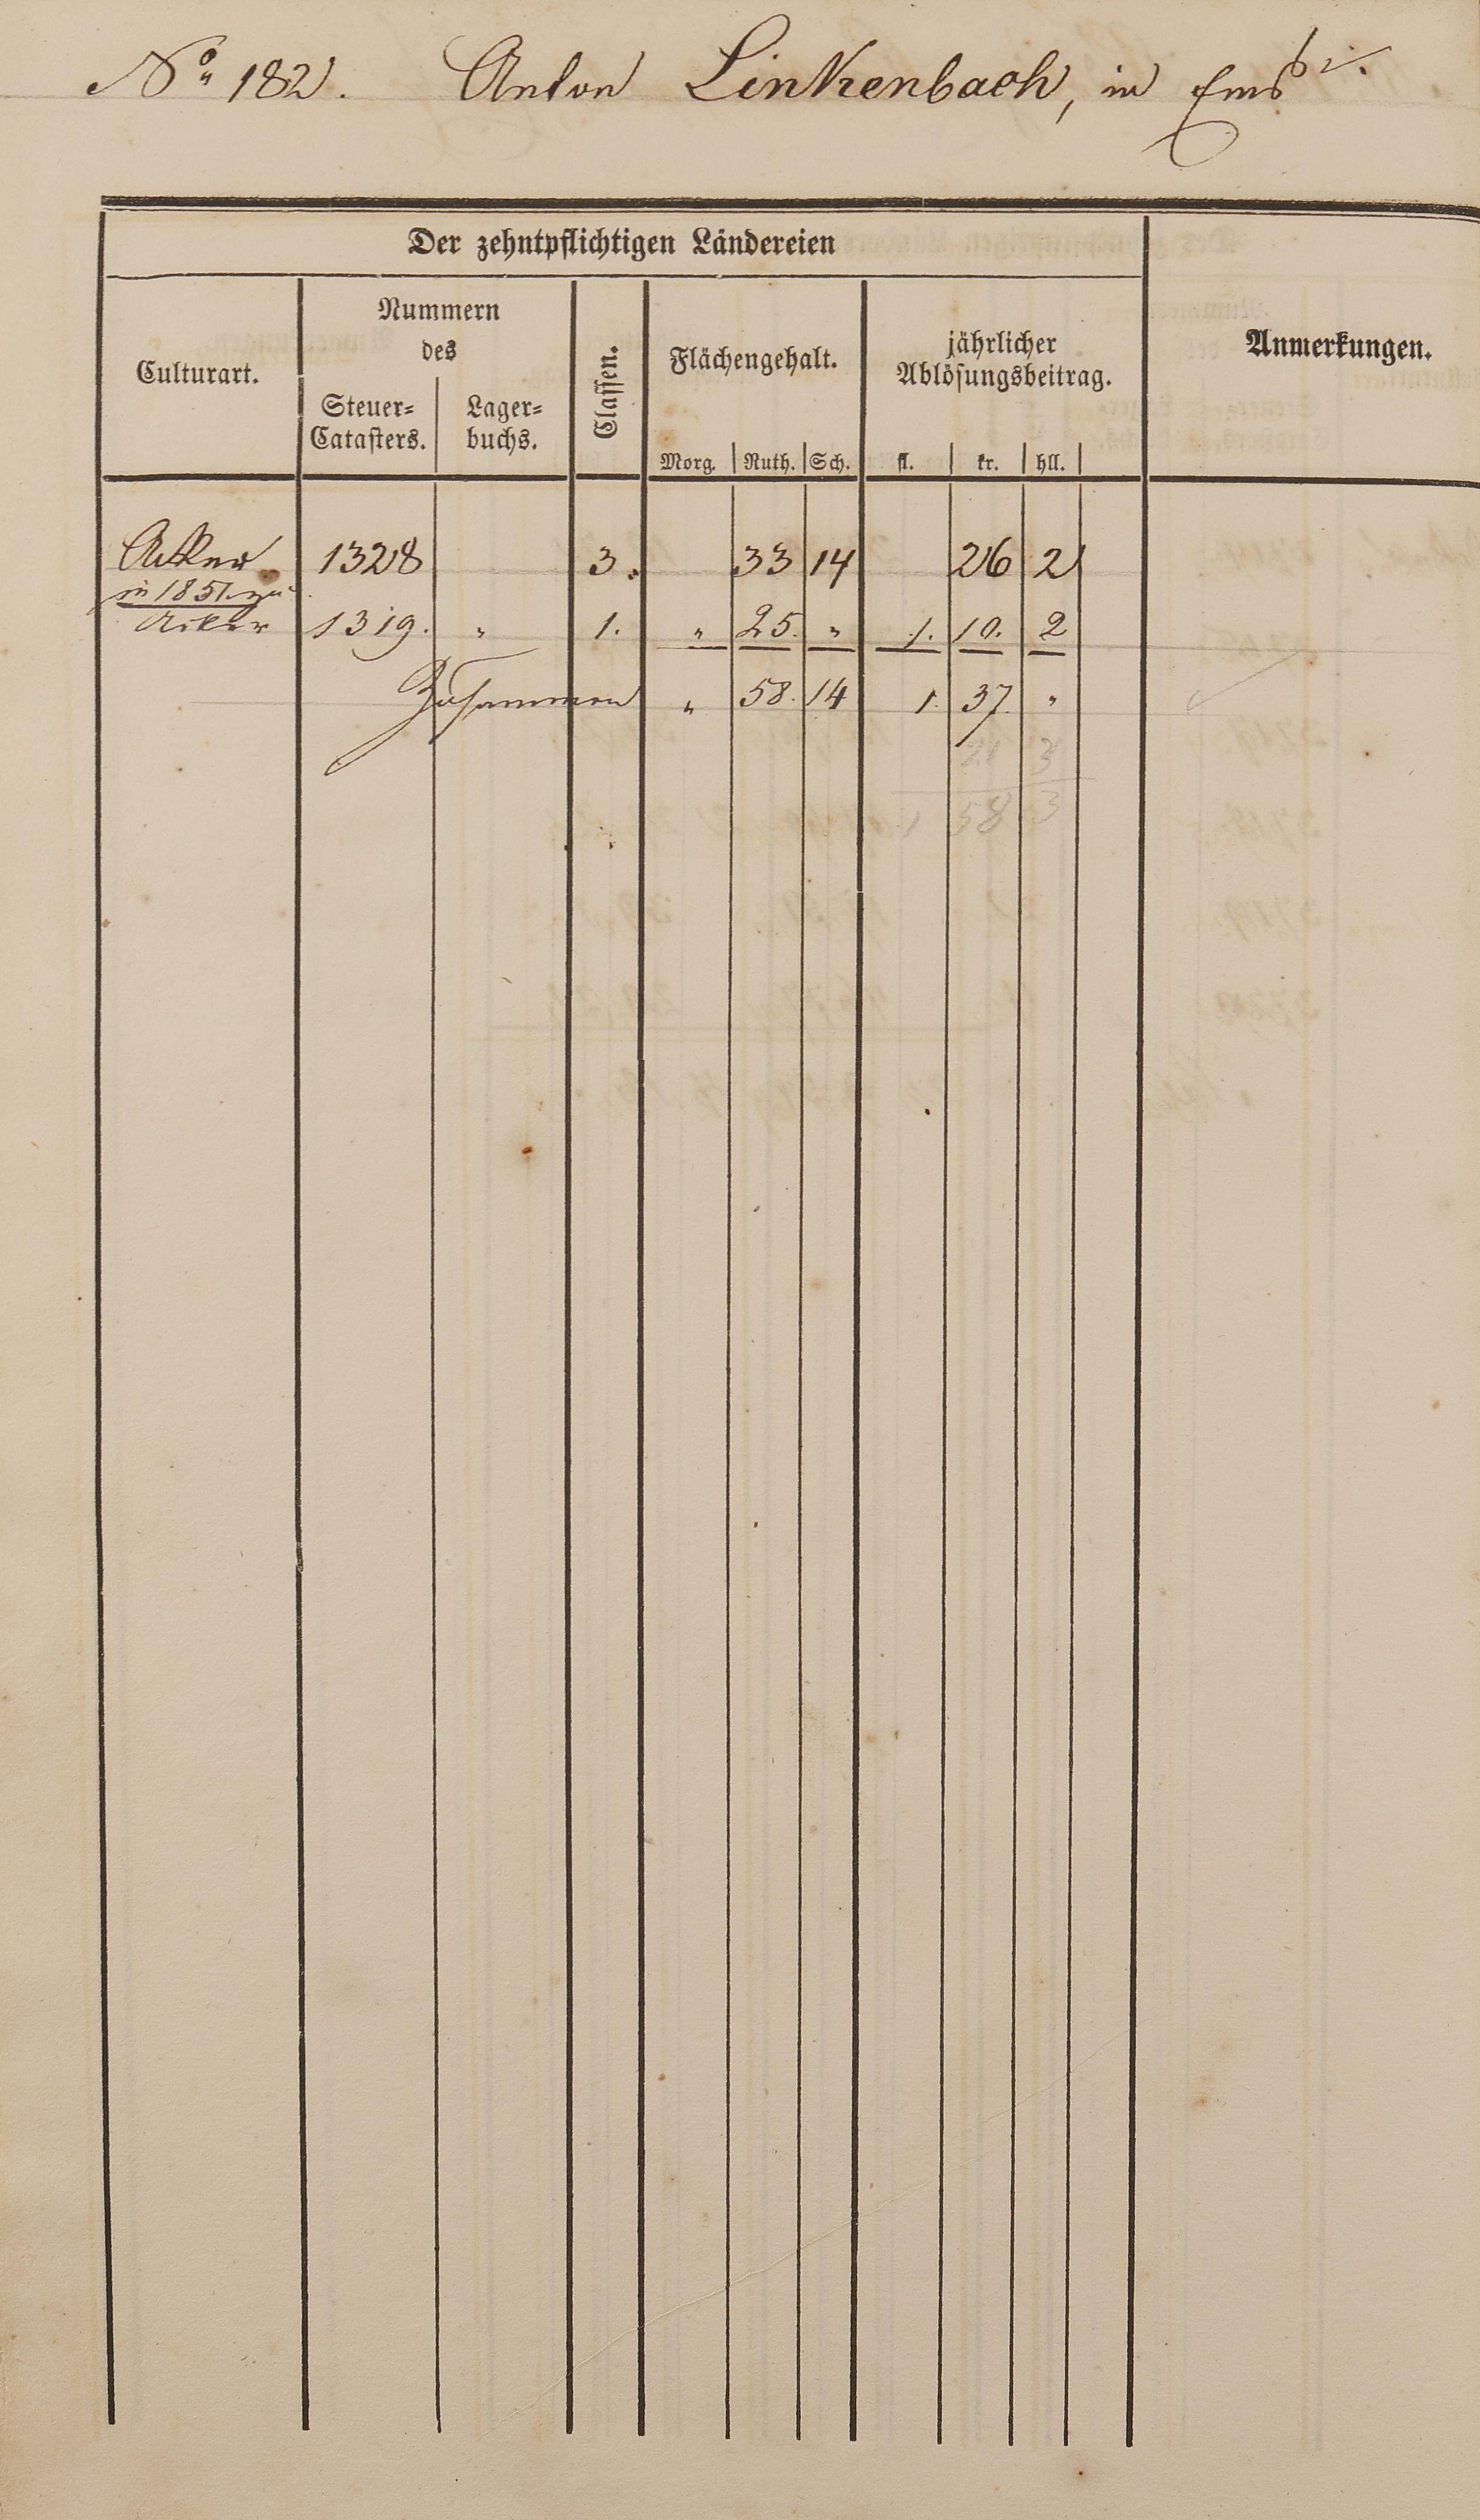 No 182. Anton Linkenbach, in Ems
Der zehntpflichtigen Ländereien
Culturart.
Nummern
des
Steuer=
Catasters.
Lager=
buchs.
Classen.
Flächengehalt.
Morg. Ruth. Sch.
jährlicher
Ablösungsbeitrag.
fl. kr. hll.
Anmerkungen.
Acker 1328 3. 33 14 26 2
in 1851. zu
Acker 1319. " 1. " 25. " 1. 10. 2
Zusammen " 58. 14 1. 37. "
21 3
1 58 3